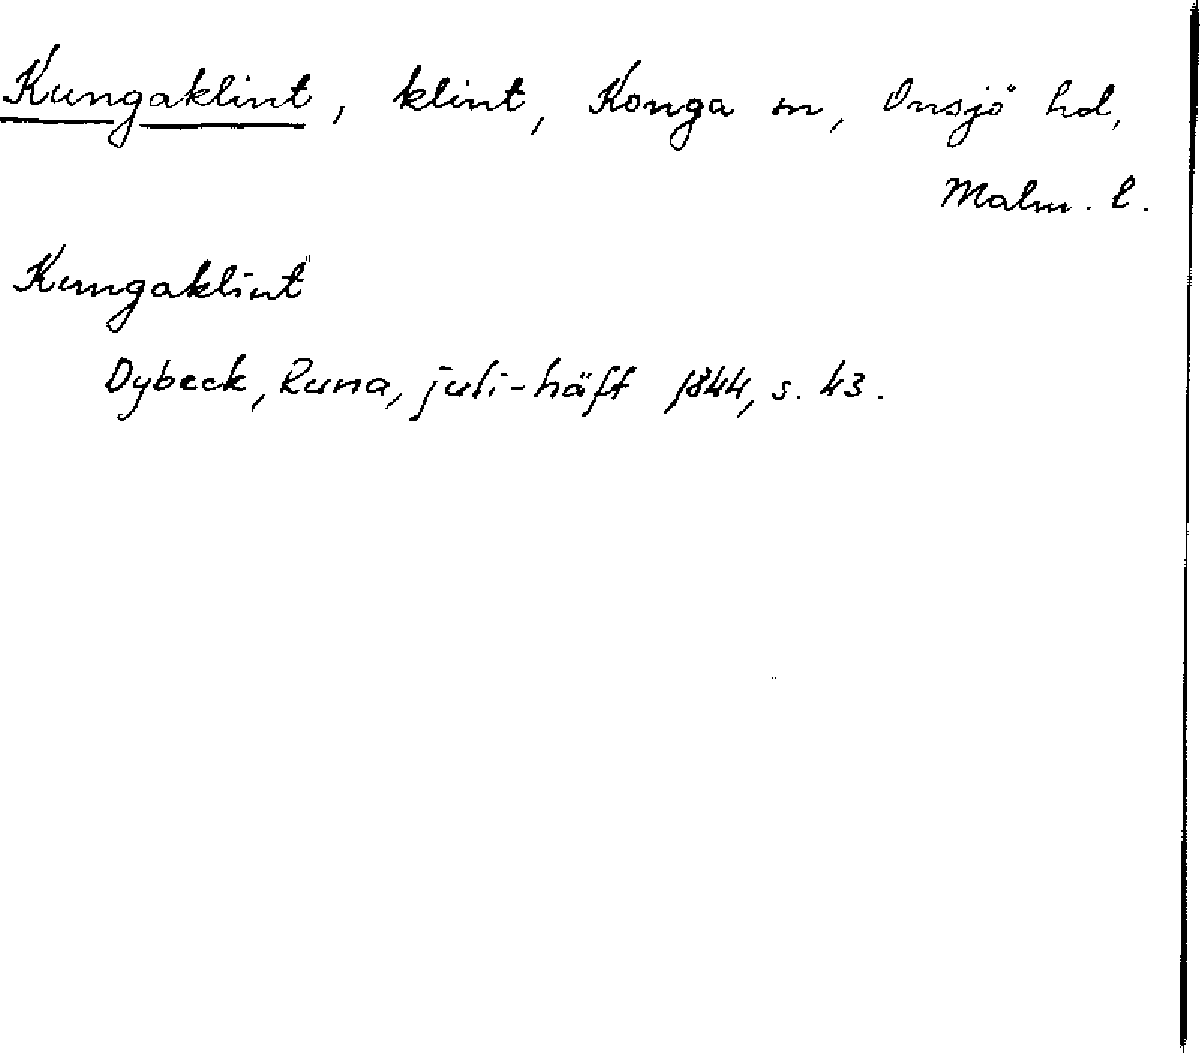 Kungaklint, klint, Konga sn, Onsjö hd,
Malm. l.
Kungaklint
Dybeck, Runa, juli-häft 1844, s. 43.